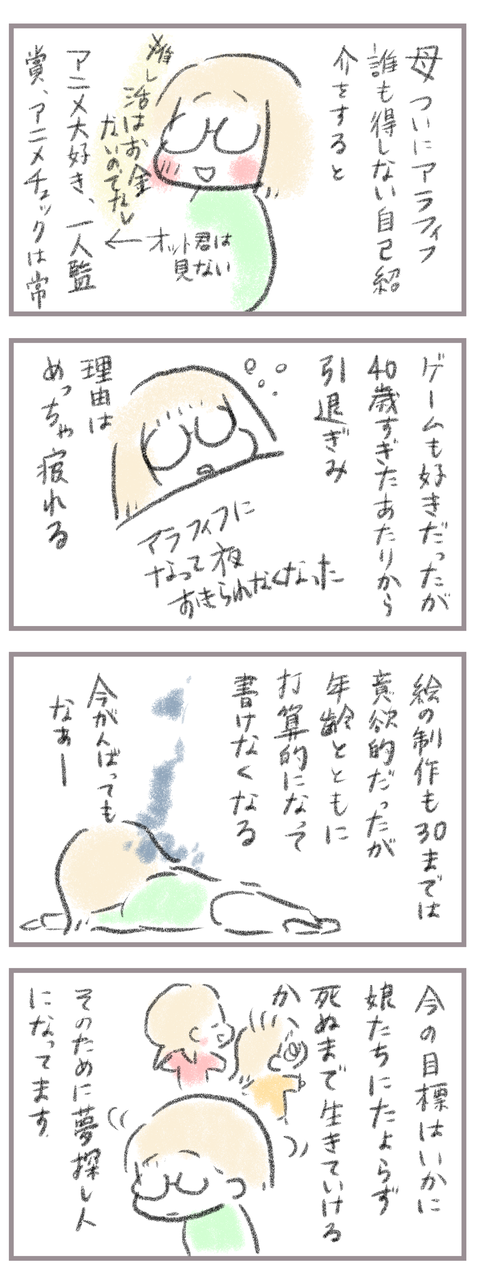 母ついにアラフィフ
誰も得しない自己紹
介をすると
推し活はお金
ないのでなし
オット君は
見ない
アニメ大好き、一人監
賞、アニメチェックは常
ゲームも好きだったが
40歳すぎたあたりから
引退ぎみ
アラフィフに
なって夜
おきられなくなった
理由は
めっちゃ疲れる
絵の制作も30までは
意欲的だったが
年齢とともに
打算的になって
書けなくなる
今がんばっても
なぁー
今の目標はいかに
娘たちにたよらず
死ぬまで生きていける
か、
そのために夢探し人
になってます